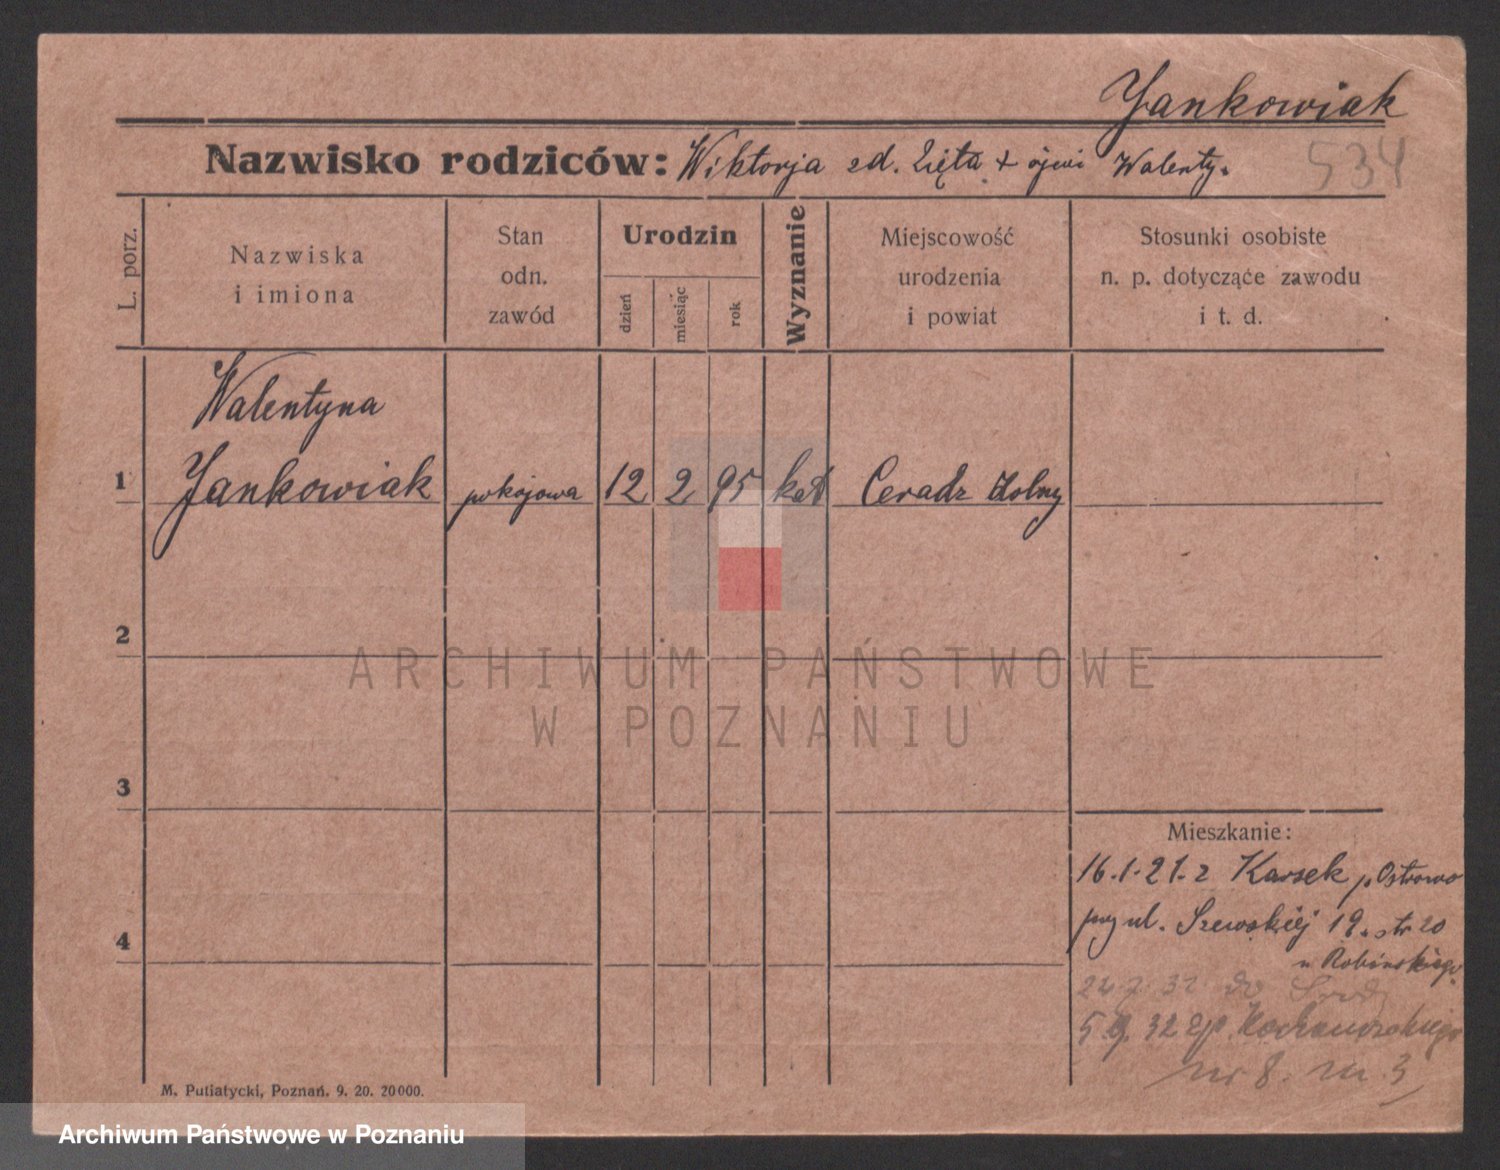 Jankowiak
Nazwisko rodziców: Wiktorja zd. Zięta + ojciec Walenty.
534
L. porz.
Nazwiska
i imiona
Stan
odn.
zawód
Urodzin
dzień
miesiąc
rok
Wyznanie
Miejscowość
urodzenia
i powiat
Stosunki osobiste
n. p. dotyczące zawodu
i t. d.
Walentyna
1 Jankowiak pokojowa 12 2 95 kat Ceradz Dolny
2
3
4
Mieszkanie:
16.1.21. z Karsek p. Ostrowo
przy ul. Szewskiej 19. str 20
u Robińskiego
22 7 32 do Środy
5.9.32 Kochanowskiego
nr 8. m. 3
M. Putiatycki, Poznań. 9. 20. 20000.
ARCHIWUM PAŃSTWOWE
W POZNANIU
Archiwum Państwowe w Poznaniu